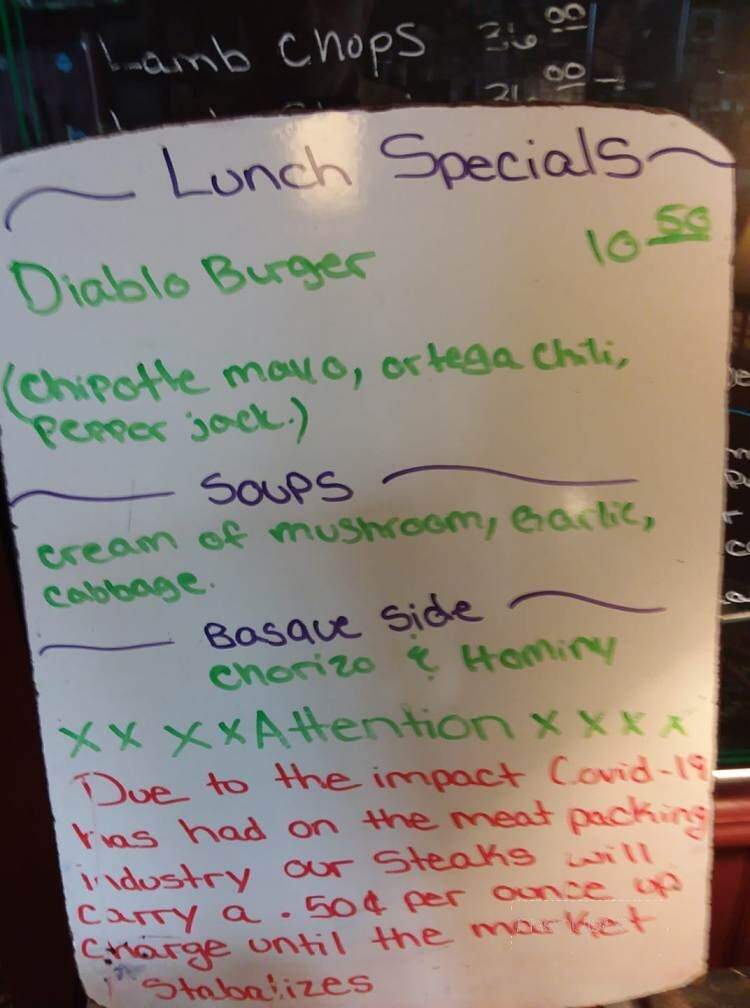 Lamb Chops 36 00
Lunch Specials
Diablo Burger 10 50
(Chipotle mayo, ortega chili,
Pepper jack.)
Soups
cream of mushroom, Garlic,
cabbage.
Basque Side
Chorizo & Hominy
X X X X Attention X X X X
Due to the impact Covid-19
has had on the meat packing
industry our Steaks will
carry a .50¢ per ounce up
charge until the market
Stabalizes